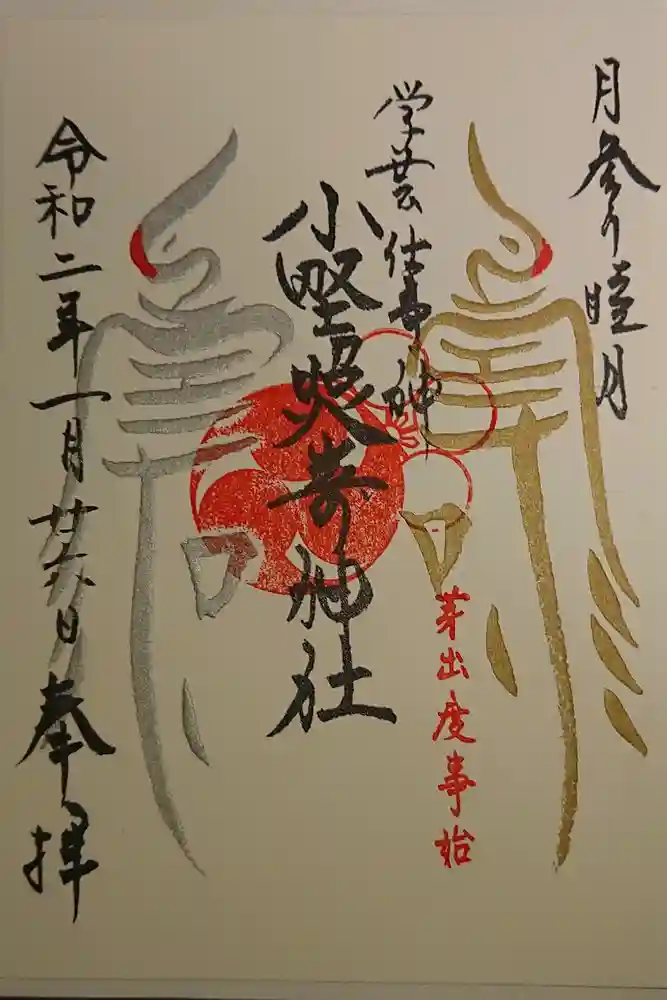 月参り睦月
学芸仕事の神
芽出度事始
小野照崎神社
令和二年一月廿六日
奉拝